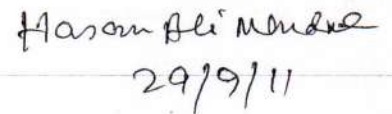 Hasan Ali Mondal
29/9/11